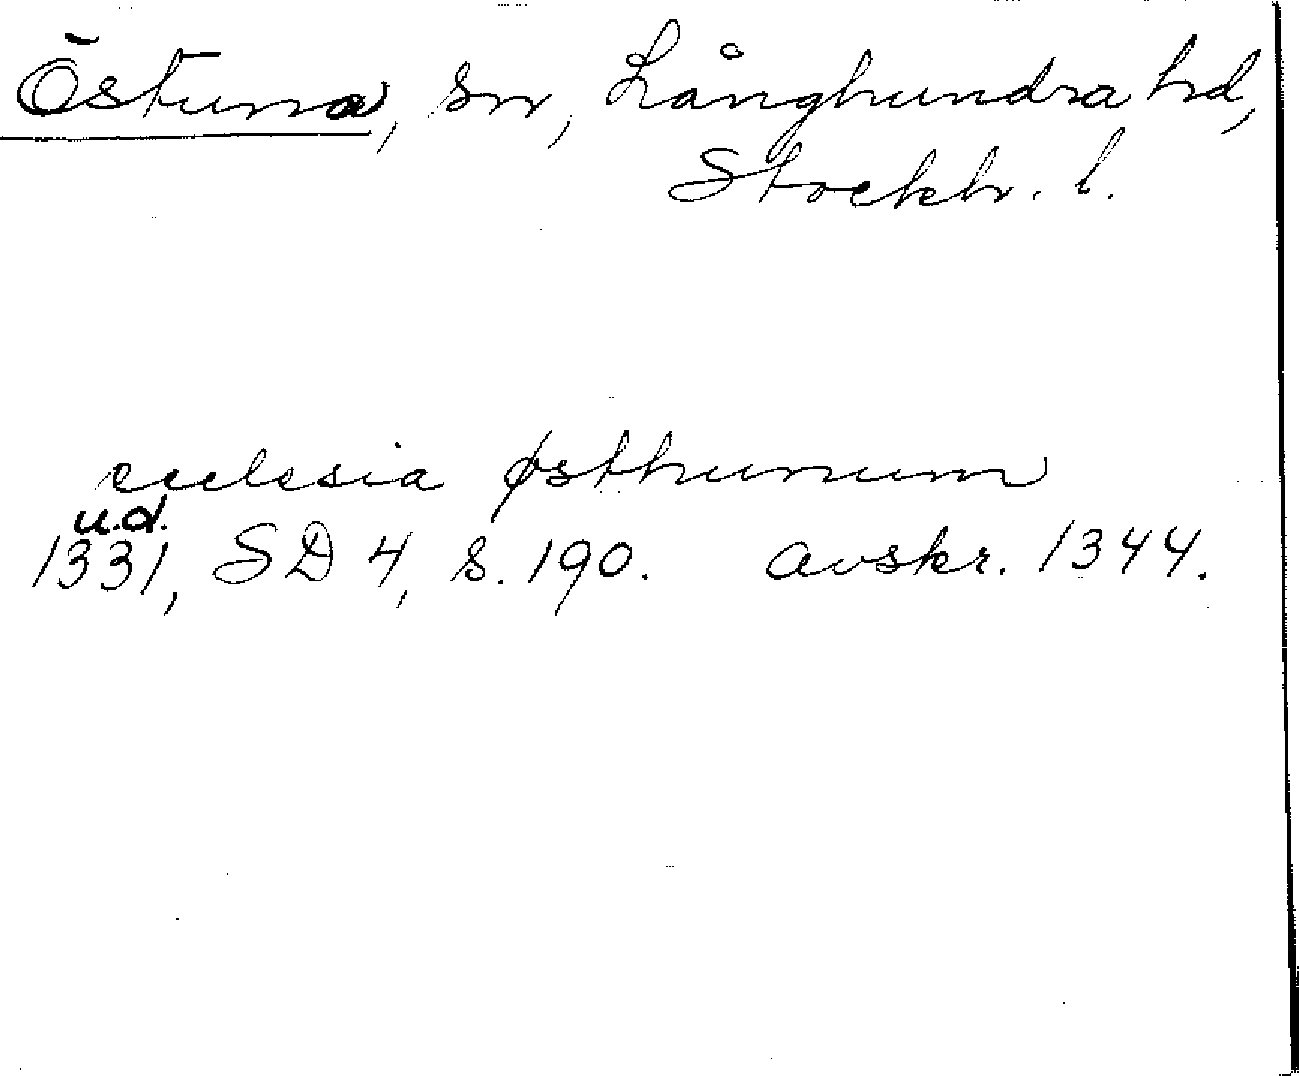 Östuna, sn, Långhundra hd,
Stockh. l.
ecclesia østhunum
u.d.
1331, SD 4, s. 190. avskr. 1344.